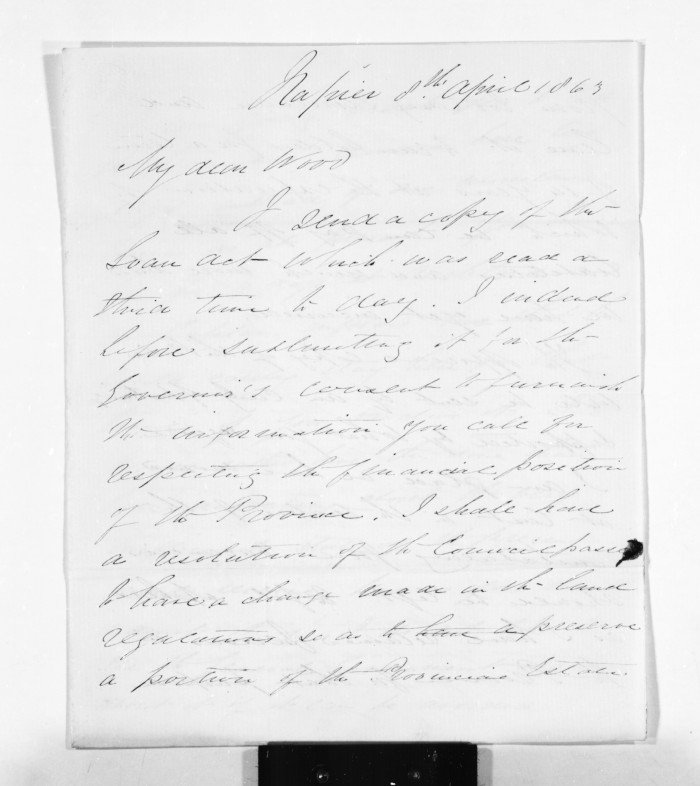 Napier 8th April 1863
My dear Wood
I send a copy of the
Loan act which was read a
third time to day. I intend
before submitting it for the
Governor's consent to furnish
the information you call for
respecting the financial position
of the Province. I shall have
a resolution of the Council passed
to have a change made in the land
regulations so as to have a preserve
a portion of the Provincial Estate.